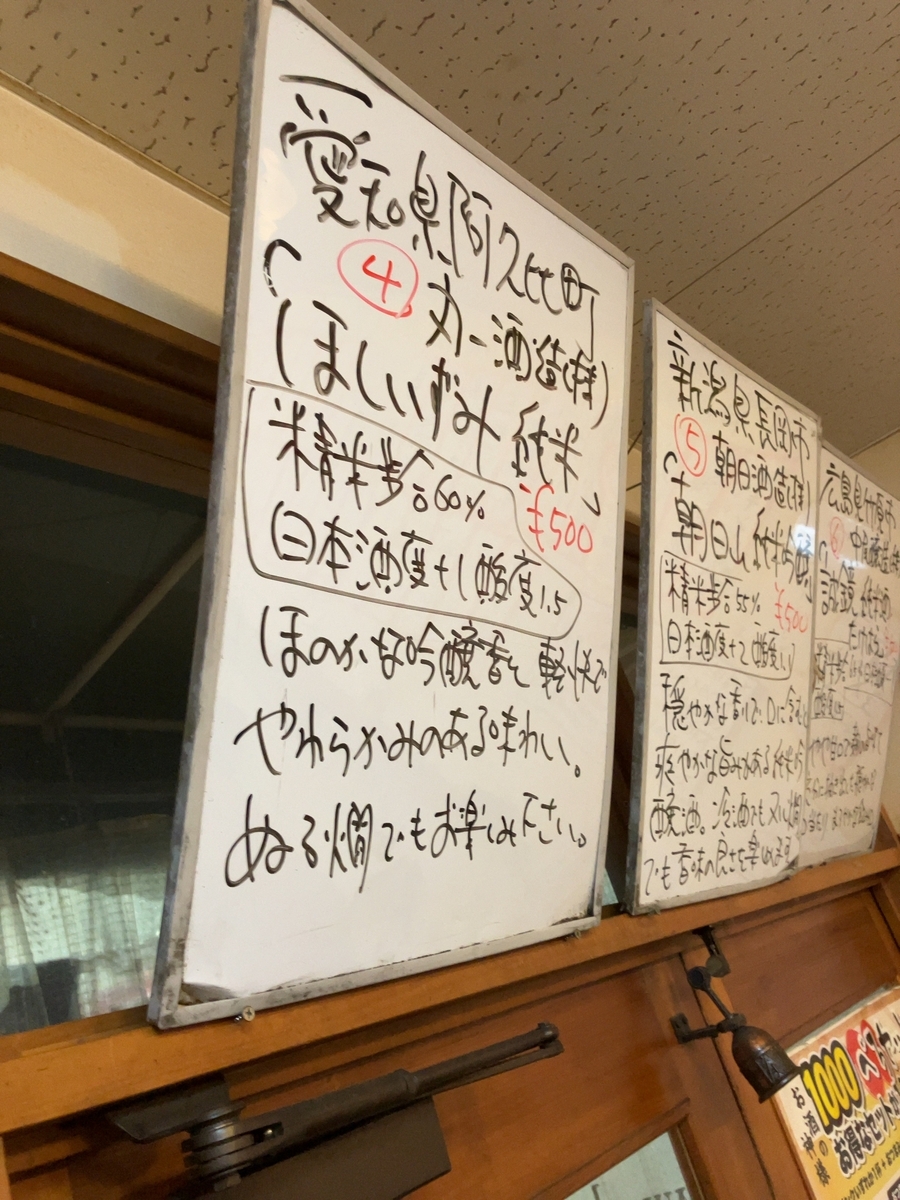 愛知県阿久比町
④ 丸一酒造(様)
「ほしいずみ 純米」
精米歩合60% ¥500
日本酒度+1 酸度1.5
ほのかな吟醸香と軽快で
やわらかみのある味わい。
ぬる燗でもお楽しみ下さい。
新潟県長岡市
⑤ 朝日酒造(様)
「朝日山 純米吟醸
精米歩合55% ¥500
日本酒度+2 酸度1.
穏やかな香りで口に含む
爽やかな旨みがある純米吟
醸酒。冷酒でもぬる燗
でも香味の良さを楽しめます
広島県竹原市
⑥ 中尾醸造(様
誠鏡 純米酒
たけはら
精米歩合
酸度1.5
やや甘口で
1000
お得なセット
お酒の神様